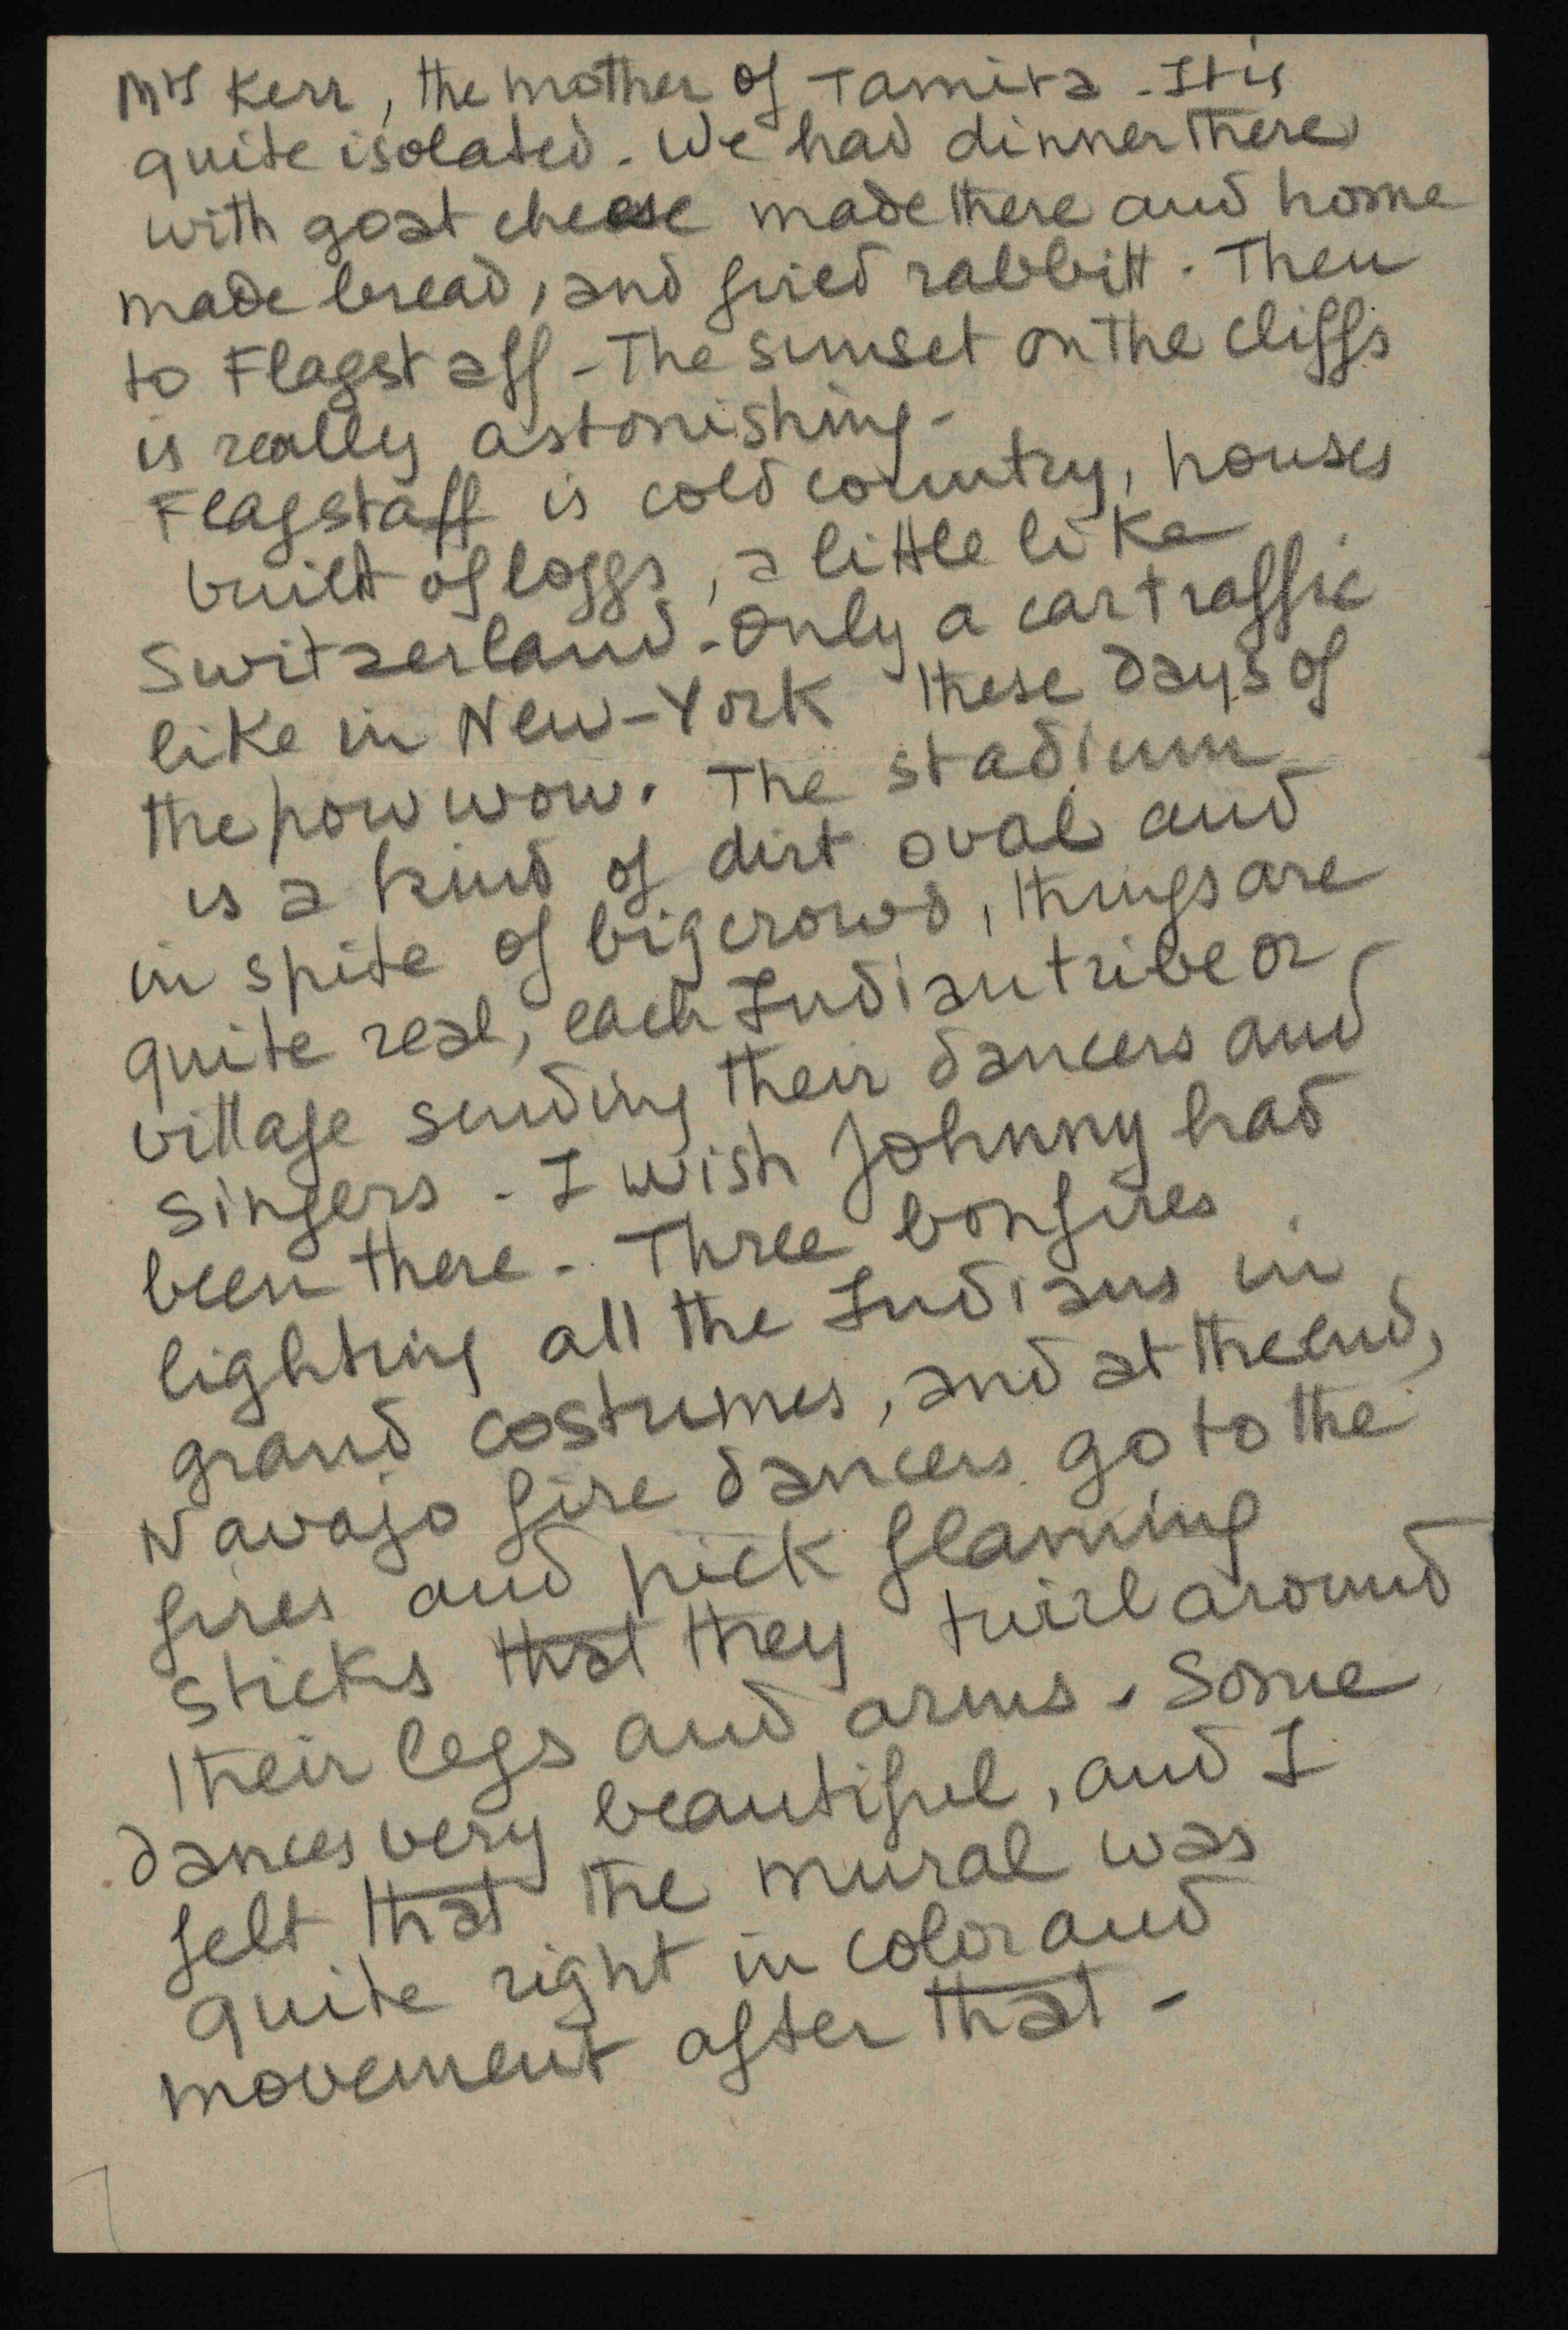 Mrs Kerr, the mother of Tamira - It is
quite isolated - We had dinner there
with goat cheese made there and home
made bread, and fried rabbitt. Then
to Flagstaff - The sunset on the cliffs
is really astonishing -
Flagstaff is cold country, houses
built of loggs, a little like
Switzerland - Only a car traffic
like in New-York these days of
the pow wow. The stadium
is a kind of dirt oval and
in spite of big crowd, things are
quite real, each Indian tribe or
village sending their dancers and
singers - I wish Johnny had
been there - Three bonfires
lighting all the Indians in
grand costumes, and at the end,
Navajo fire dancers go to the
fires and pick flaming
sticks that they twirl around
their legs and arms - Some
dances very beautiful, and I
felt that the mural was
quite right in color and
movement after that -